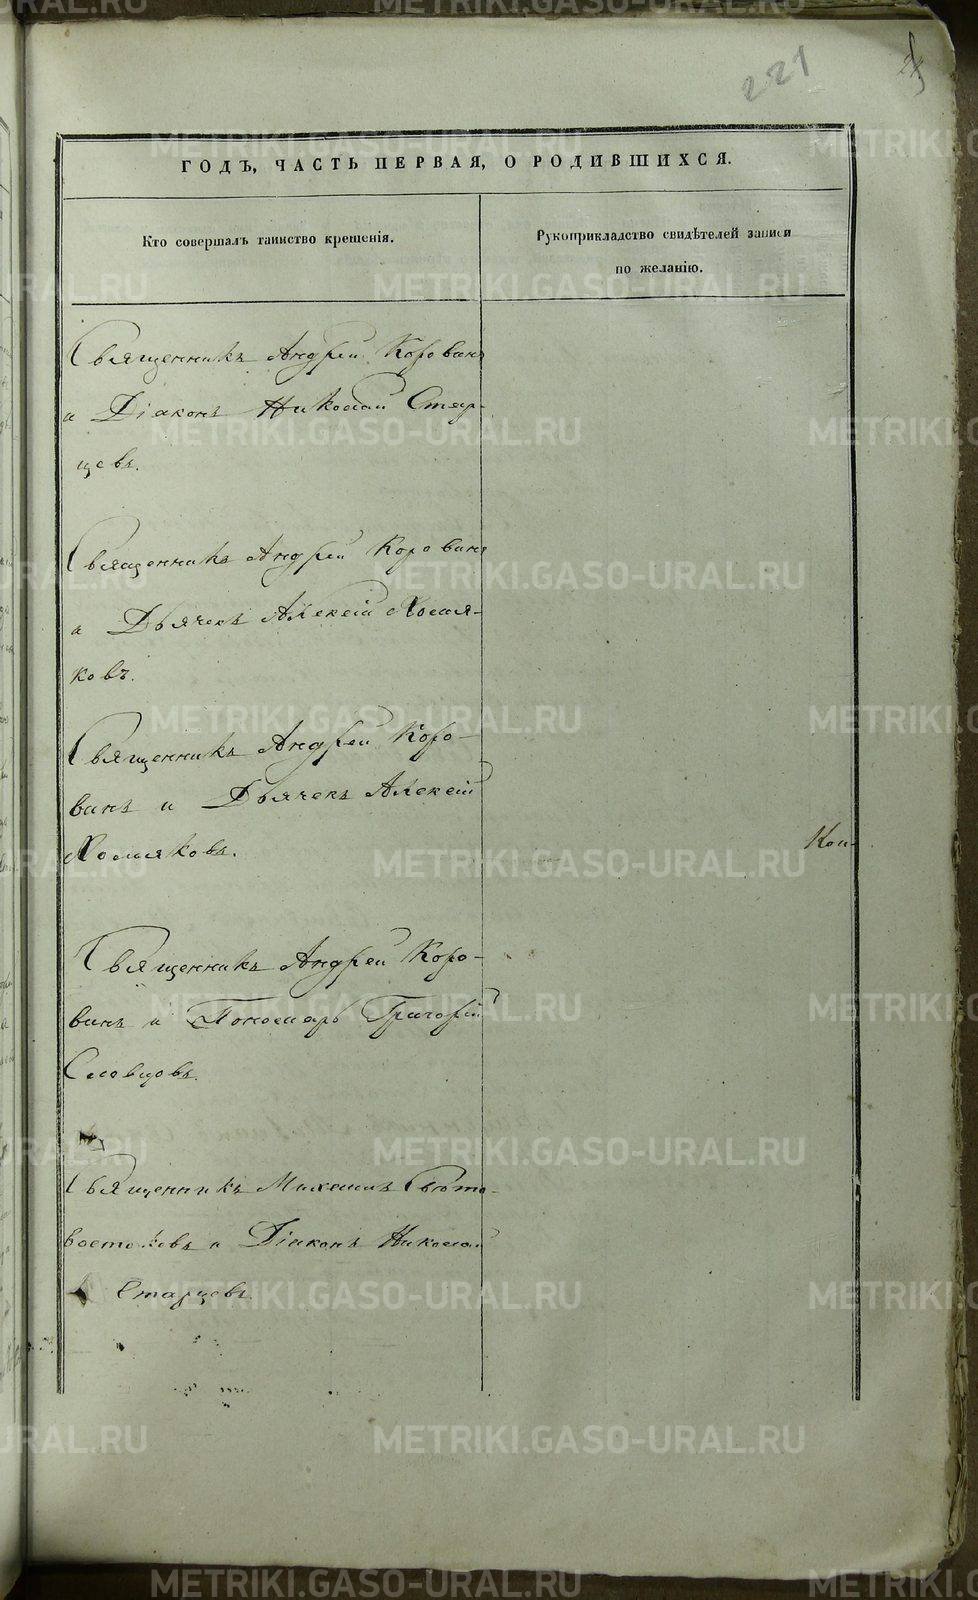 221
ГОДЪ, ЧАСТЬ ПЕРВАЯ, О РОДИВШИХСЯ.
Кто совершалъ таинство крещенія.
Рукоприкладство свидѣтелей записи
по желанію.
Священникъ Андрей Коровинъ
и Діаконъ Николай Стар-
цевъ.
Священникъ Андрей Коровинъ
и Дьячекъ Алексій Хомя-
ковъ.
Священникъ Андрей Коро-
винъ и Дьячекъ Алексій
Хомяковъ.
Коп-
Священникъ Андрей Коро-
винъ и Пономарь Григорій
Словцовъ.
Священникъ Михаилъ Свѣто-
востоковъ и Діаконъ Николай
Старцевъ.
METRIKI.GASO-URAL.RU